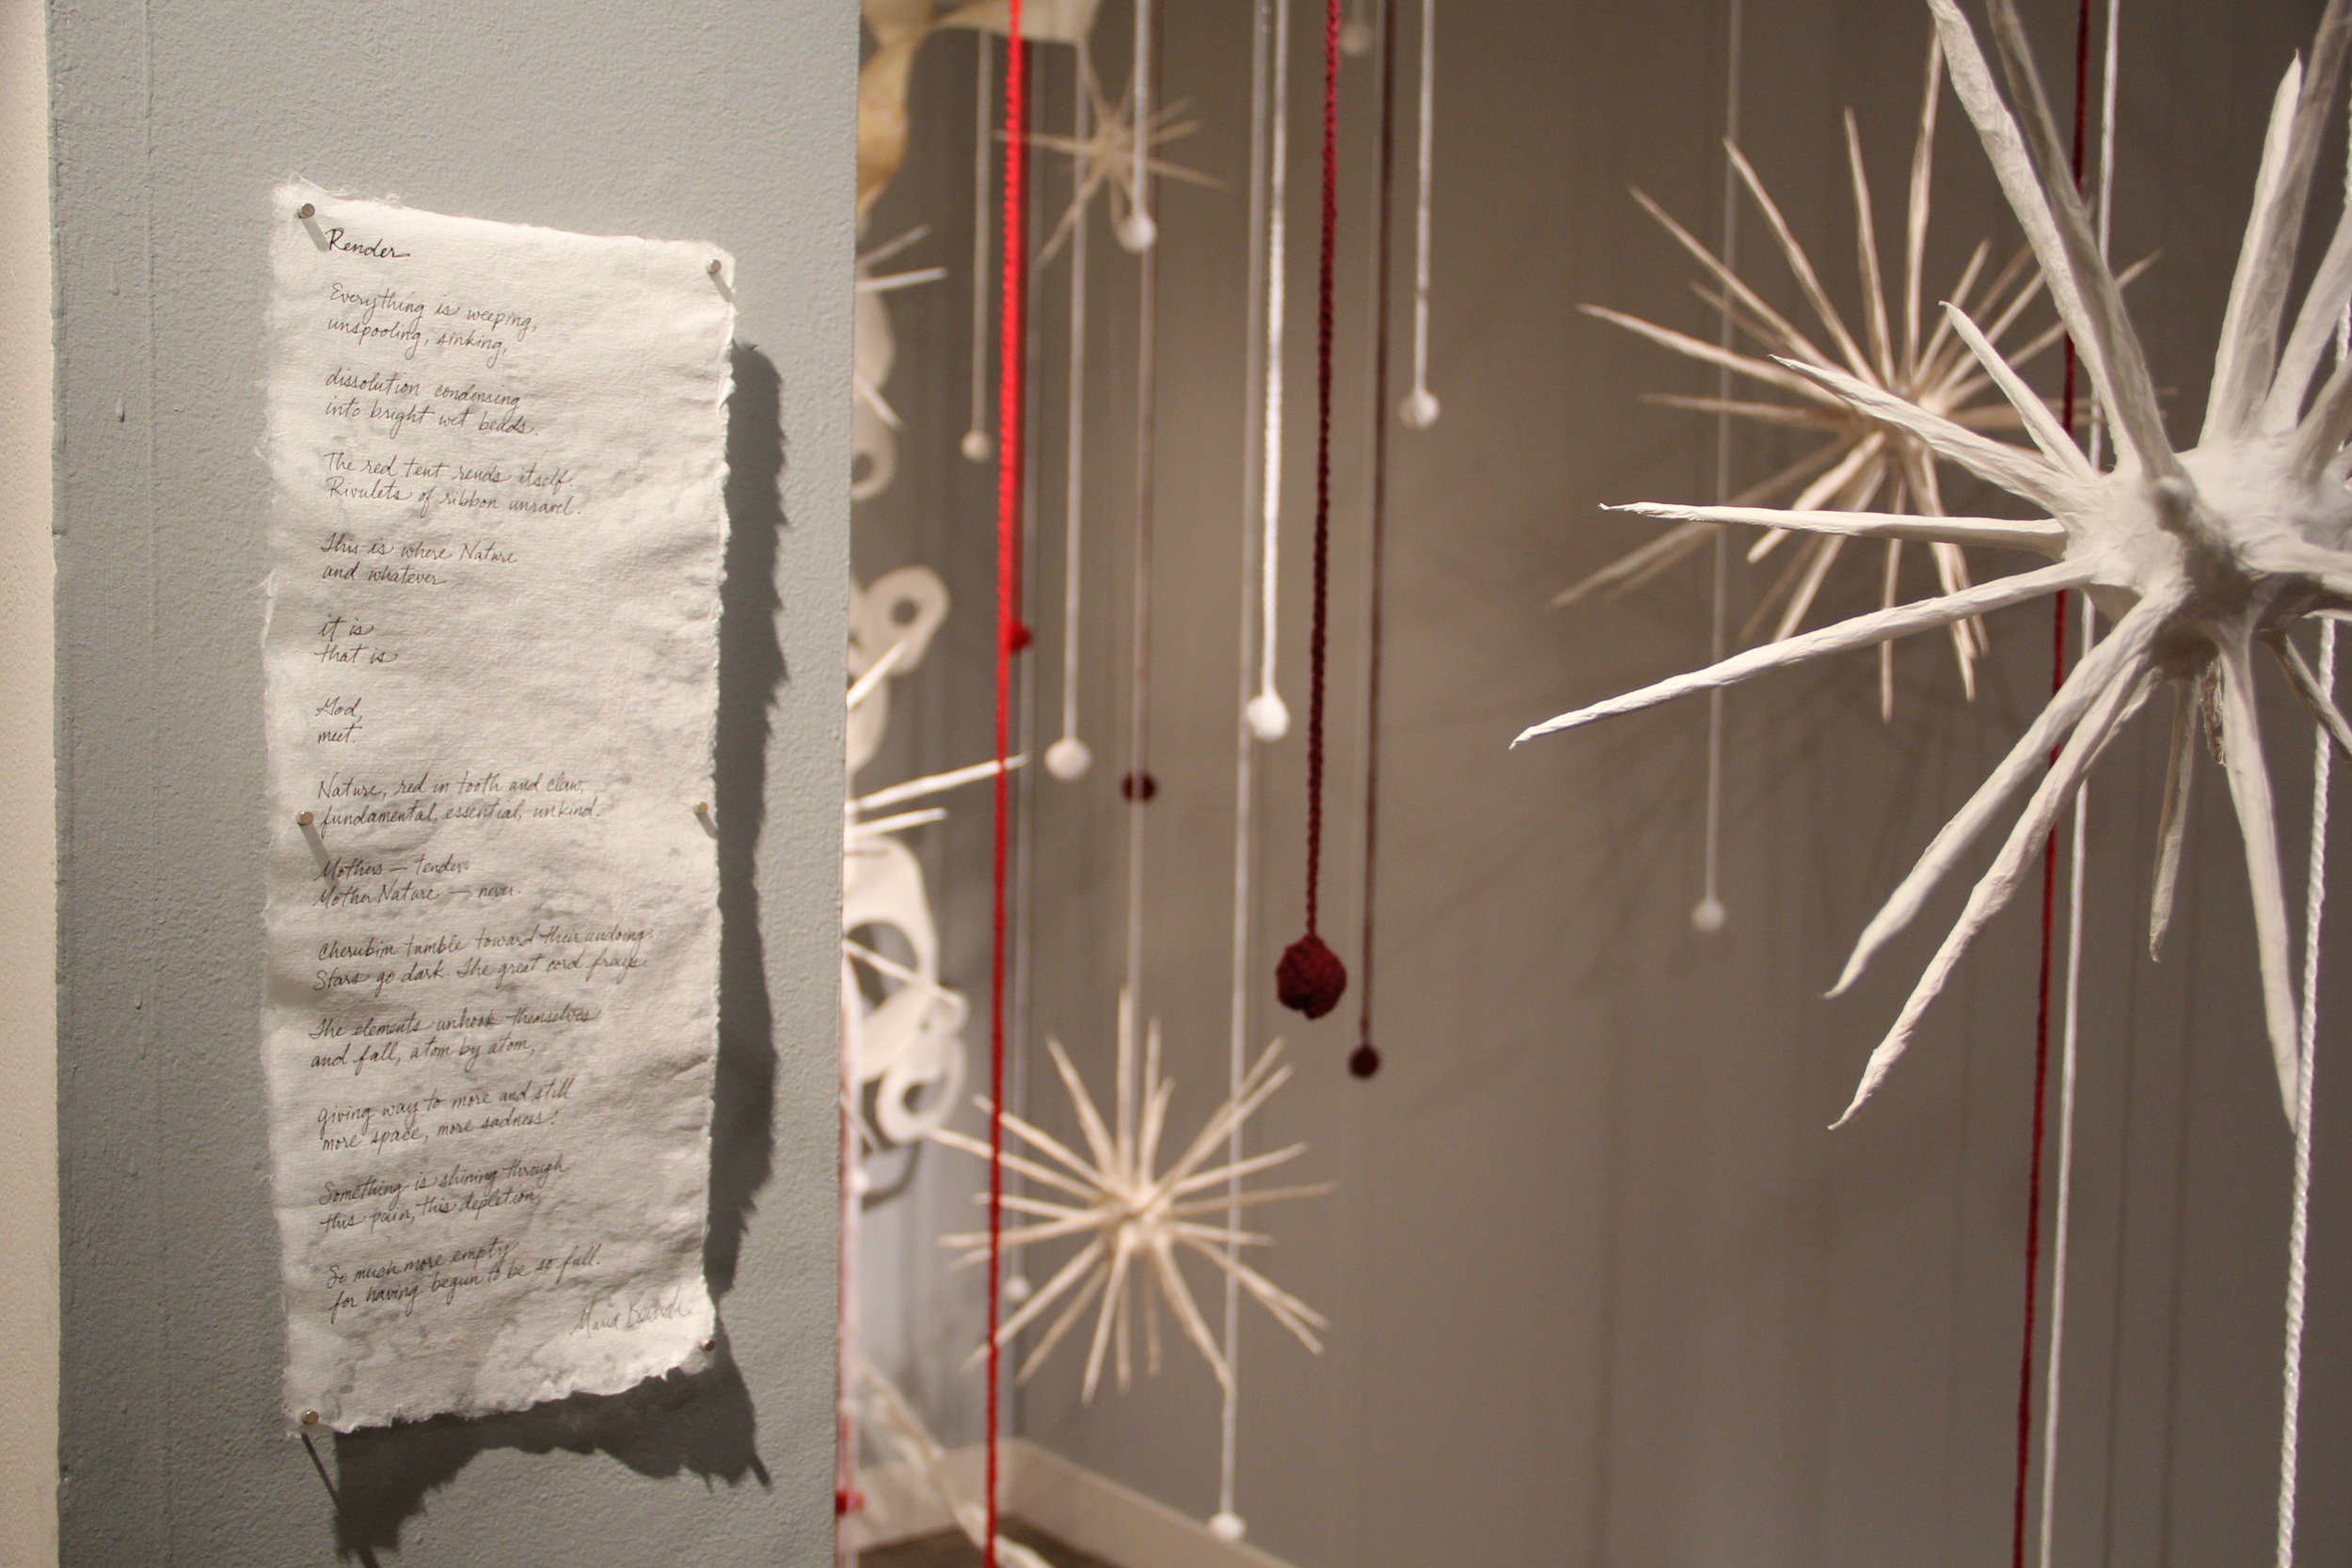 Render
Everything is weeping,
unspooling, sinking,
dissolution condensing
into bright wet beads.
The red tent rends itself.
Rivulets of ribbon unravel.
This is where Nature
and whatever
it is
that is
God,
meet.
Nature, red in tooth and claw,
fundamental, essential, unkind.
Mothers — tender.
Mother Nature — never.
Cherubim tumble toward their undoing.
Stars go dark. The great cord frays.
The elements unhook themselves
and fall, atom by atom,
giving way to more and still
more space, more sadness.
Something is shining through
this pain, this depletion,
So much more empty
for having begun to be so full.
Maria